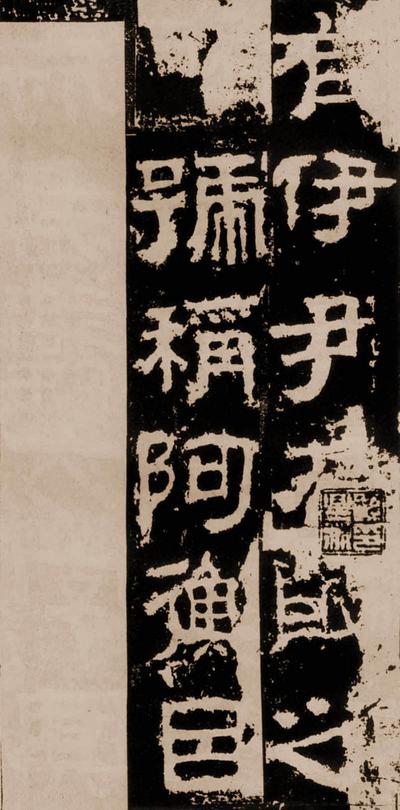 有伊尹在殷之
號稱阿衡因